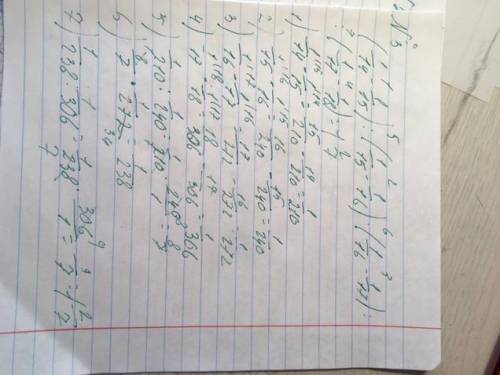 №3
(1/14 - 1/15) : (1/15 - 1/16) · (1/16 - 1/17) :
: (1/17 - 1/18) = 1 2/7
1) 1/14 - 1/15 = 15/210 - 14/210 = 1/210
2) 1/15 - 1/16 = 16/240 - 15/240 = 1/240
3) 1/16 - 1/17 = 17/272 - 16/272 = 1/272
4) 1/17 - 1/18 = 18/306 - 17/306 = 1/306
5) 1/210 : 1/240 = 1/210 · 240/1 = 8/7
6) 8/7 · 1/272 = 1/238
7) 1/238 : 1/306 = 1/238 · 306/1 = 9/7 = 1 2/7